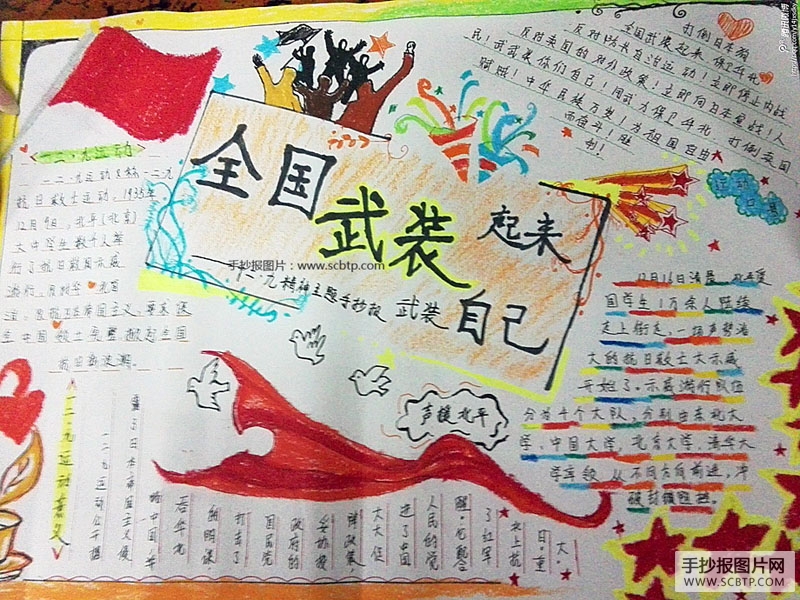 全国
武装
起来
手抄报图片：www.scbtp.com
一二·九精神主题手抄报
武装
自己
打倒日本狗
全国武装起来 保卫华北
反对防共自治运动！立即停止内战
反对卖国的对外政策！立即向日本宣战！人
民！武装你们自己！用武力保卫华北 打倒卖国
贼贼！中华民族万岁！为祖国自由
而奋斗！胜
利！
运动
口号
一二·九运动
一二·九运动又称一二九
抗日救亡运动，1935年
12月9日，北平（北京）
大中学生数千人举
行了抗日救国示威
游行，反对华北自
治，反抗日本帝国主义，要求保
全中国领土完整，掀起全国
抗日新浪潮。
12月16日清晨，
国学生1万余人陆续
走上街走，一场声势浩
大的抗日救亡大示威
开始了。示威游行队伍
分为4个大队，分别由东北大
学、中国大学，北京大学，清华大
学率领 从不同方向前进，冲
破封锁阻拦。
声援北平
一二·九运动意义
一二·九运动公开揭
露了日本帝国主义侵
略中国，并
吞华北
的阴谋
打击了
国民党
政府的
妥协投
降政策，
大大促
进了中国
人民的觉
醒，它配合
了红军
北上抗
日，重
大。
腾讯微博
手抄报图片网
WWW.SCBTP.COM